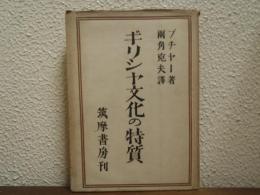 ブチャー著
両角克夫譯
ギリシヤ文化の特質
筑摩書房刊